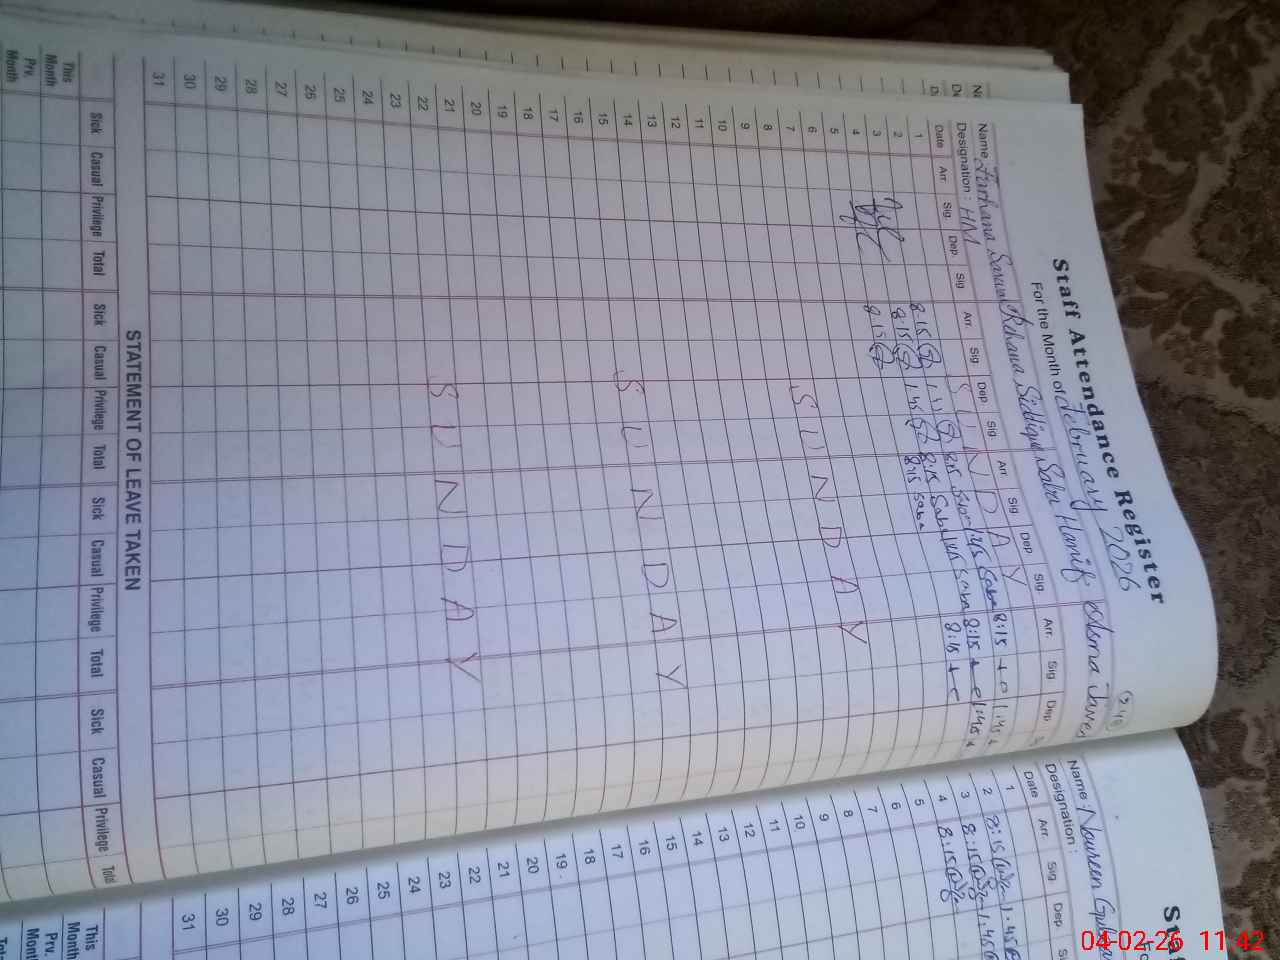 Staff Attendance Register
For the Month of February 2026
Name Farhana Designation : HM
Rehana Siddiqa
Saba Hanif
Asma
Date Arr. Sig. Dep. Sig Arr. Sig Dep Sig Arr Sig Dep Sig. Arr. Sig Dep
1 SUNDAY
2 8:15 1:45 8:15 Saba 1:45 Saba 8:15 1:45
3 8:15 1:45 8:15 Saba 1:45 Saba 8:15 1:45
4 8:15 8:15 Saba 8:15
5
6
7
8 SUNDAY
9
10
11
12
13
14
15 SUNDAY
16
17
18
19
20
21
22 SUNDAY
23
24
25
26
27
28
29
30
31
STATEMENT OF LEAVE TAKEN
Sick Casual Privilege Total Sick Casual Privilege Total Sick Casual Privilege Total Sick Casual Privilege Total
This Month
Prv. Month
Name : Noureen
Designation :
Date Arr. Sig Dep.
1
2 8:15 1:45
3 8:15 1:45
4 8:15
5
6
7
8
9
10
11
12
13
14
15
16
17
18
19
20
21
22
23
24
25
26
27
28
29
30
31
This Month
Prv. Month
04-02-26 11:42